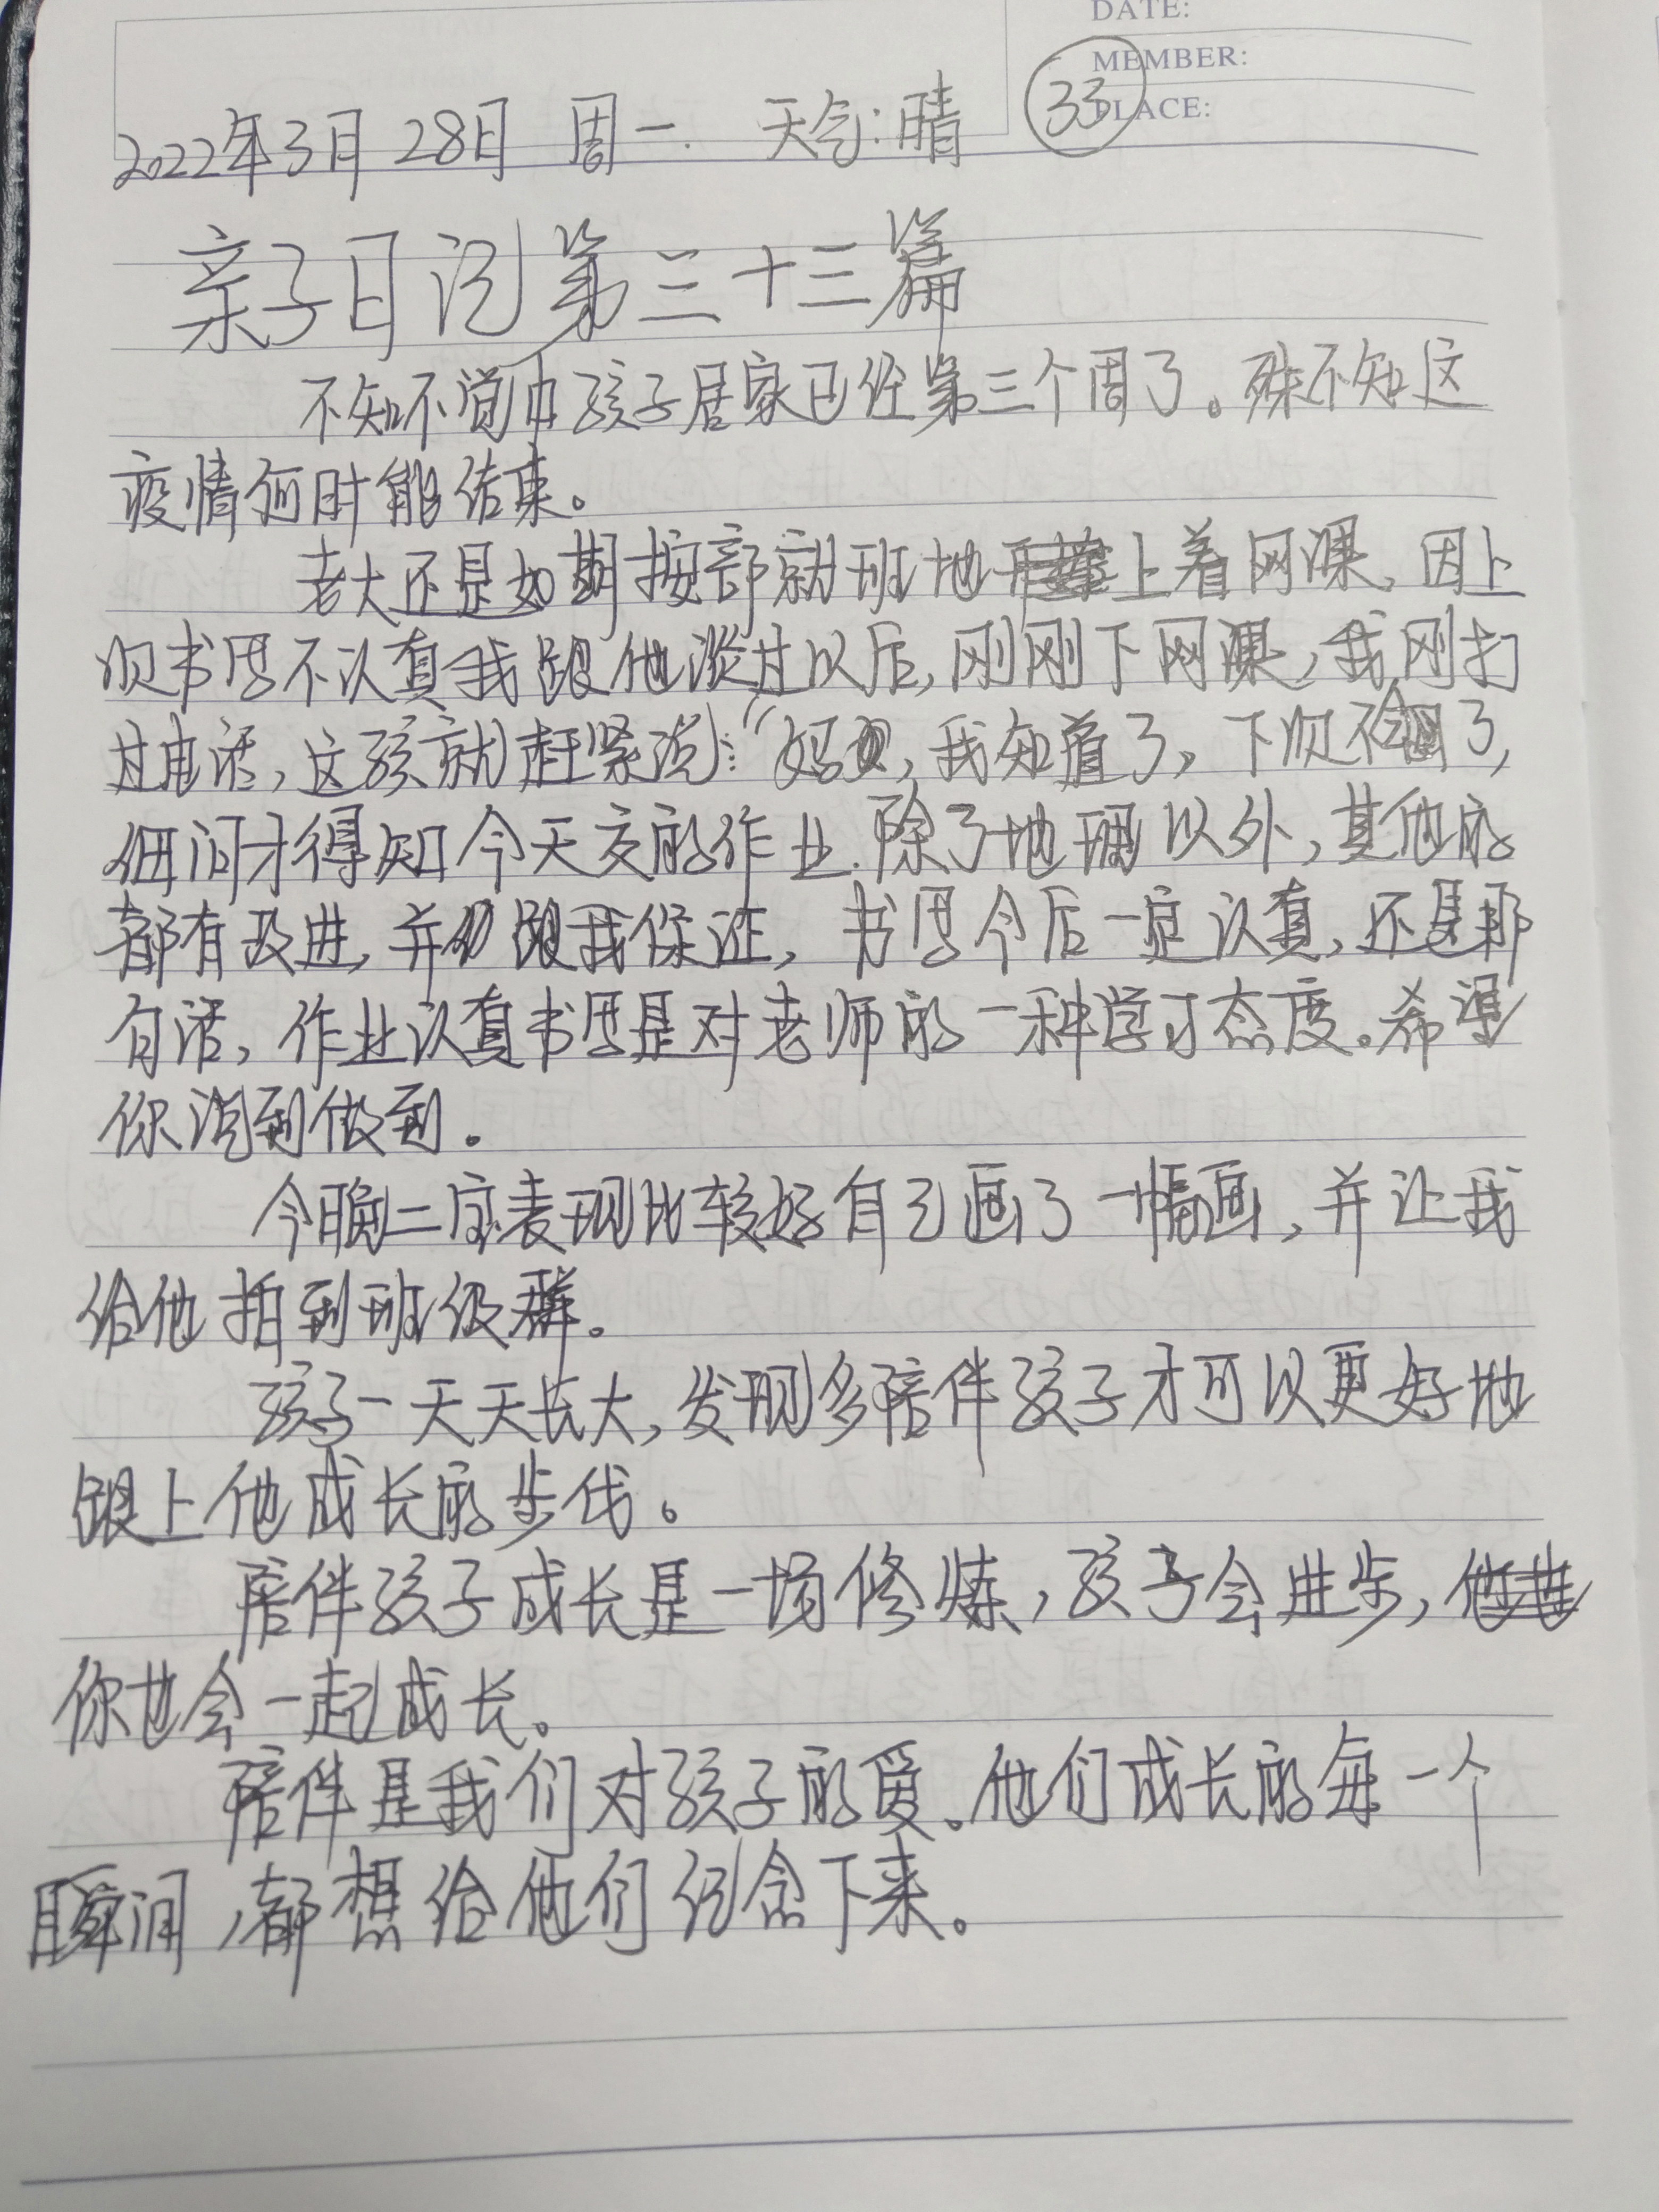 DATE:
MEMBER:
PLACE:
33
2022年3月28日 周一. 天气:晴
亲子日记第三十三篇
不知不觉中孩子居家已经第三个周了。殊不知这
疫情何时能结束。
老大还是如期按部就班地上着网课,因上
次书写不认真我跟他谈过以后,刚刚下网课,我刚打
过电话,这孩就赶紧说:“妈妈,我知道了,下次不会了,
细问才得知今天交的作业.除了地理以外,其他的
都有改进,并跟我保证,书写今后一定认真,还是那
句话,作业认真书写是对老师的一种学习态度。希望
你说到做到.
今晚二宝表现比较好自己画了一幅画,并让我
给他拍到班级群。
孩子一天天长大,发现多陪伴孩子才可以更好地
跟上他成长的步伐。
陪伴孩子成长是一场修炼,孩子会进步,
你也会一起成长。
陪伴是我们对孩子的爱。他们成长的每一个
瞬间,都想给他们纪念下来。